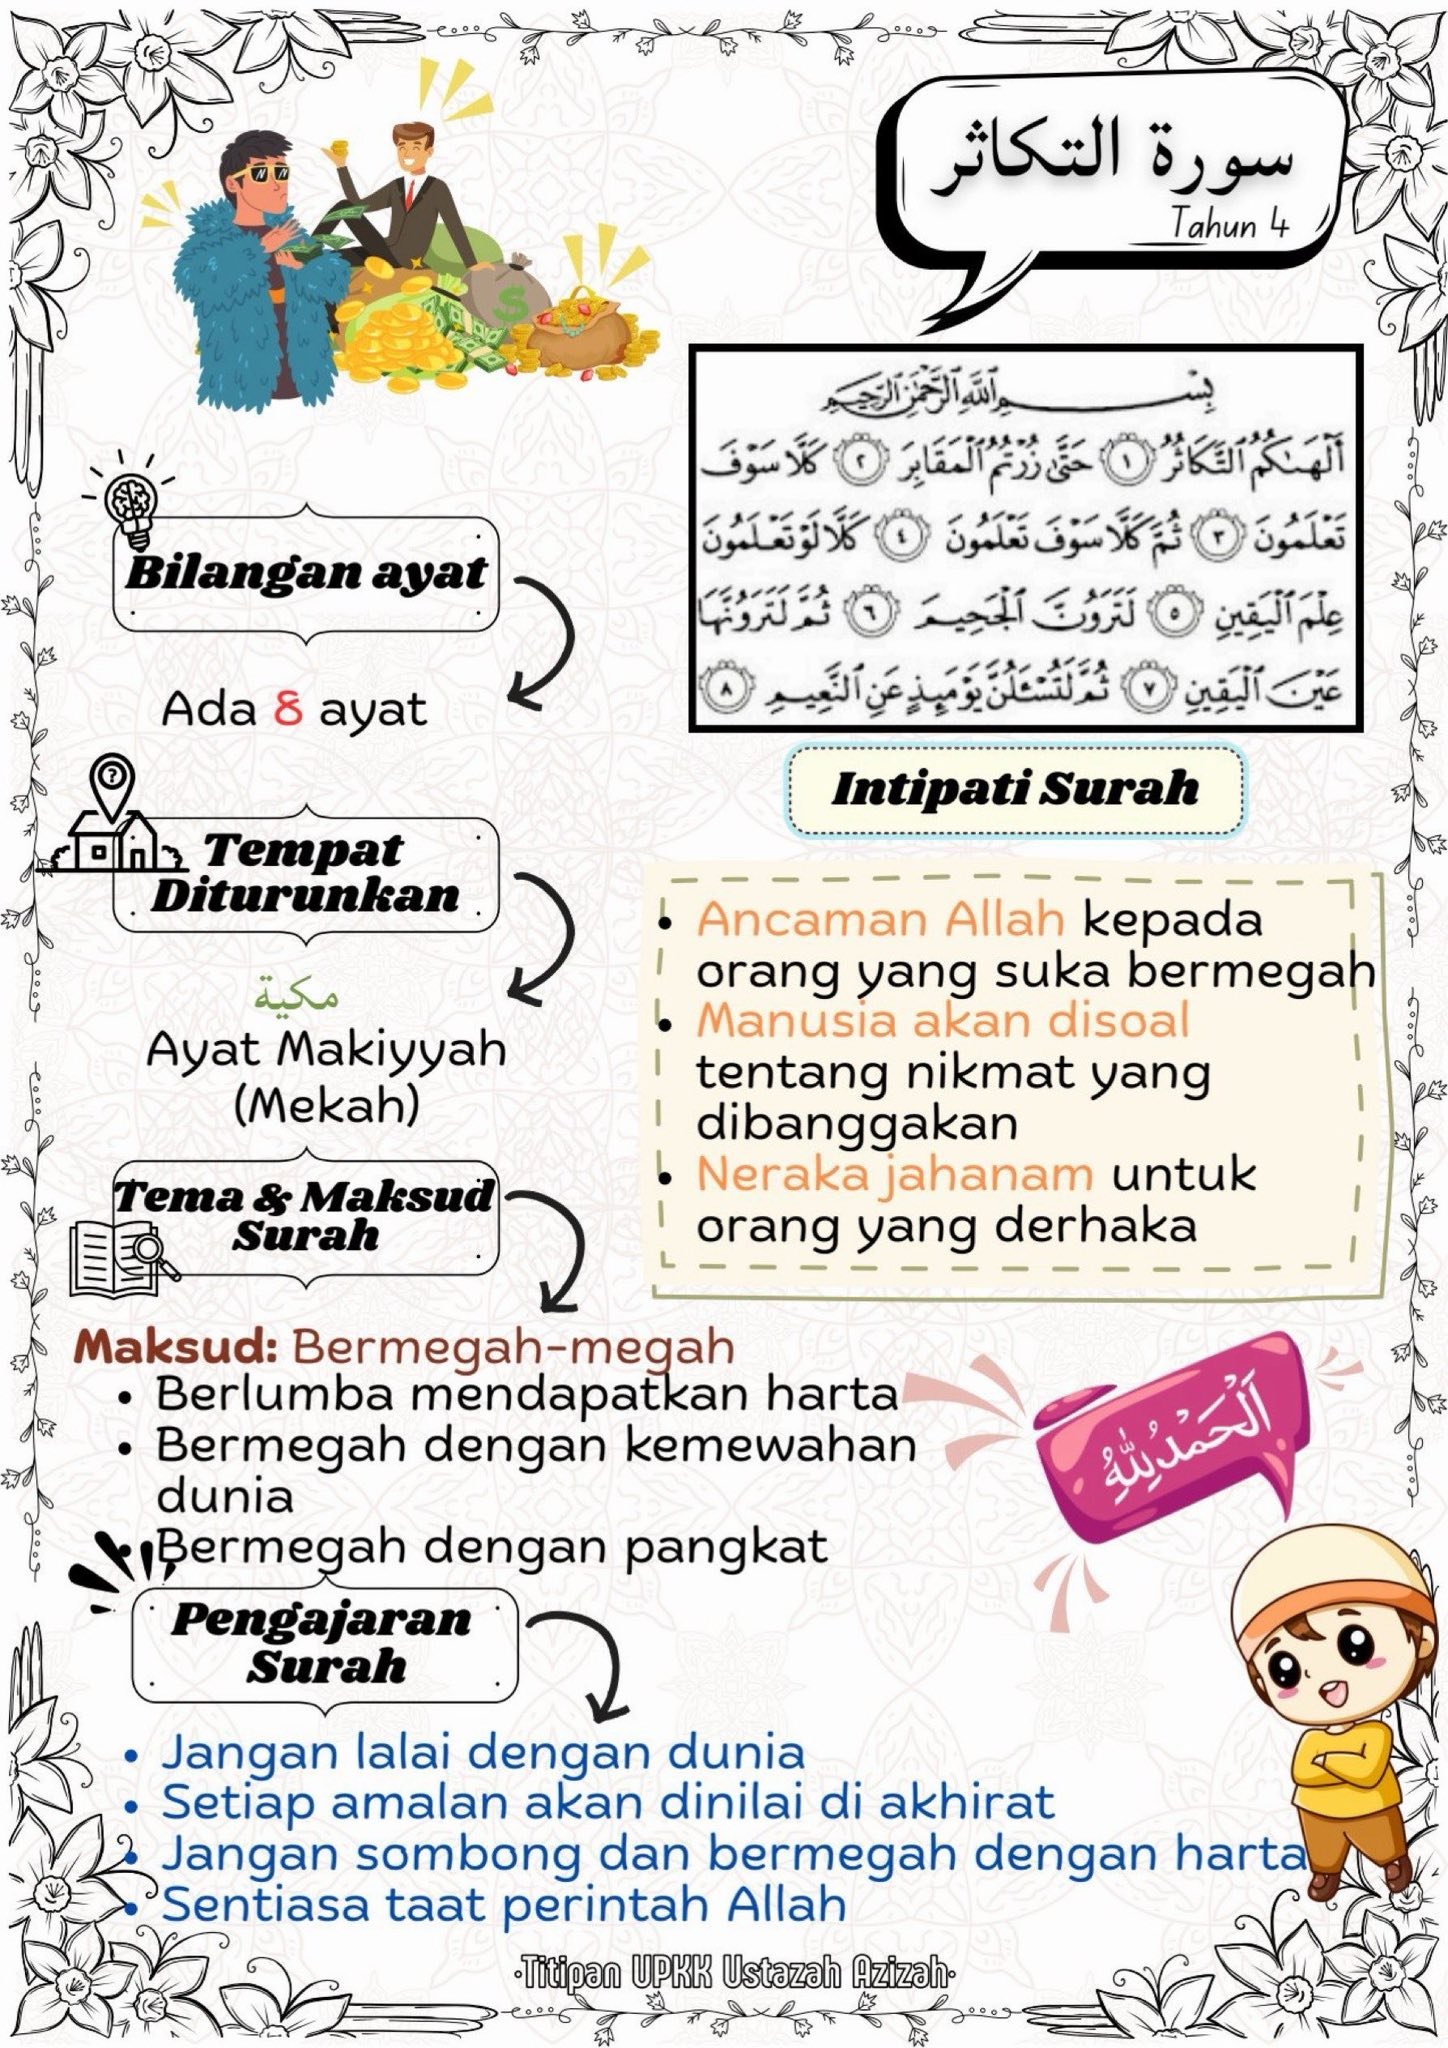 سورة التكاثر
Tahun 4
بِسْمِ اللَّهِ الرَّحْمَٰنِ الرَّحِيمِ
أَلْهَىٰكُمُ ٱلتَّكَاثُرُ ١ حَتَّىٰ زُرْتُمُ ٱلْمَقَابِرَ ٢ كَلَّا سَوْفَ
تَعْلَمُونَ ٣ ثُمَّ كَلَّا سَوْفَ تَعْلَمُونَ ٤ كَلَّا لَوْ تَعْلَمُونَ
عِلْمَ ٱلْيَقِينِ ٥ لَتَرَوُنَّ ٱلْجَحِيمَ ٦ ثُمَّ لَتَرَوُنَّهَا
عَيْنَ ٱلْيَقِينِ ٧ ثُمَّ لَتُسْـَٔلُنَّ يَوْمَئِذٍ عَنِ ٱلنَّعِيمِ ٨
Bilangan ayat
Ada 8 ayat
Tempat
Diturunkan
مكية
Ayat Makiyyah
(Mekah)
Intipati Surah
• Ancaman Allah kepada
orang yang suka bermegah
• Manusia akan disoal
tentang nikmat yang
dibanggakan
• Neraka jahanam untuk
orang yang derhaka
Tema & Maksud
Surah
Maksud: Bermegah-megah
• Berlumba mendapatkan harta
• Bermegah dengan kemewahan
dunia
• Bermegah dengan pangkat
اَلْحَمْدُ لِلّٰهِ
Pengajaran
Surah
• Jangan lalai dengan dunia
• Setiap amalan akan dinilai di akhirat
• Jangan sombong dan bermegah dengan harta
• Sentiasa taat perintah Allah
•Titipan UPKK Ustazah Azizah•